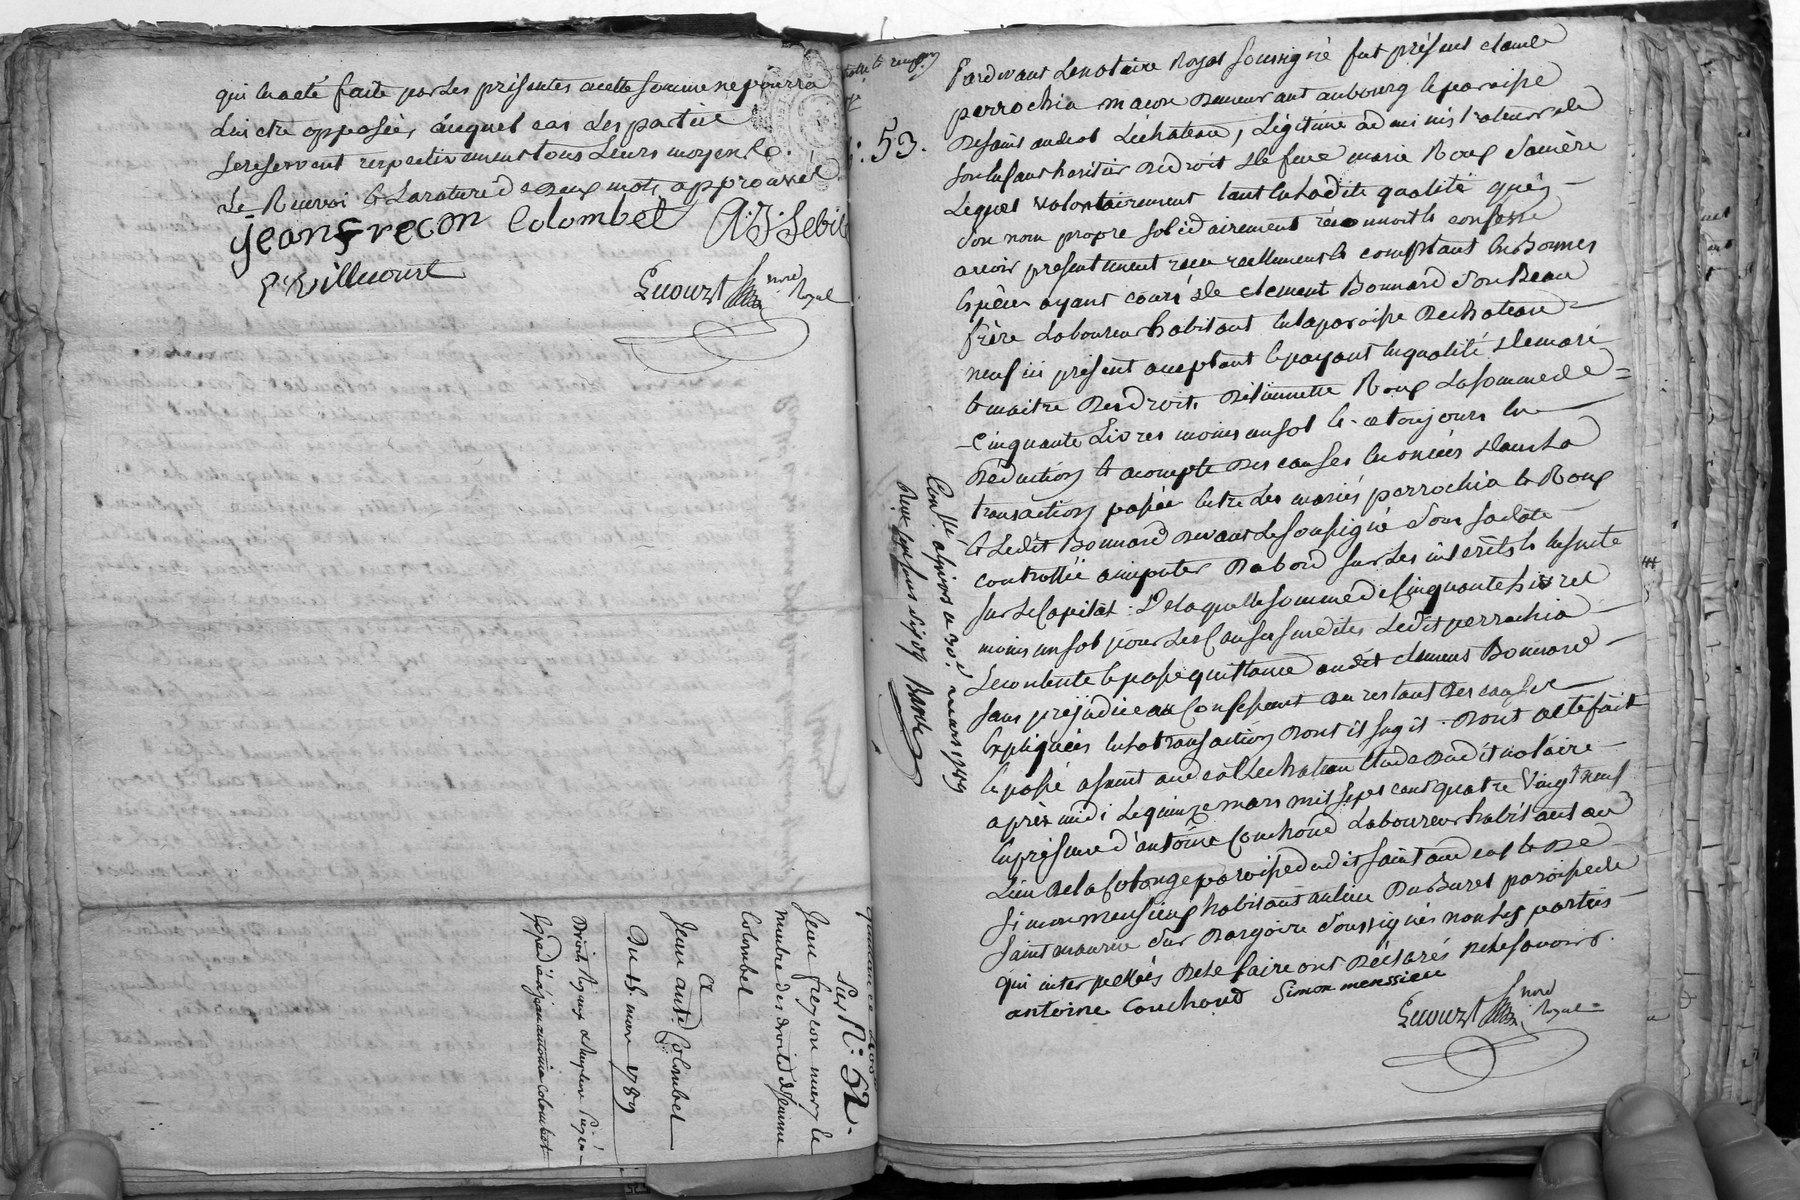 qui en a été faite par les présentes a cette somme ne pourra
lui etre opposée, auquel cas les parties
se reservent respectivement tous leurs moyens &.
Le Renvoi & La rature de deux mots approuvés
jean freçon Colombet A: J: Sebil
Villecourt
Royal
quittance
Sur N.: 52.
Jean freycon mary le
maitre des droits de jeanne
Colombet
a
Jean ant.e Colombet
Du 15. mars 1789
Droits Royaux
jean antoine colombet
: 53.
Pardevant Le notaire Royal soussigné fut présent claude
perrochia macon demeurant au bourg & paroisse
de saint andeol Lechateau, Légitime administrateur de
son enfant heritier de droit de feue marie Roux sa mère
Lequel volontairement tant en ladite qualité qu'en
son nom propre solidairement reconnoit & confesse
avoir presentement receu reellement & comptant en bonnes
espèces ayant cours de clement Bonnard son beau
frère Laboureur habitant en la paroisse de chateau
neuf ici présent acceptant & payant en qualité de mari
& maitre des droits d'étiennette Roux La somme de
cinquante Livres moins un sol & ce toujours en
déduction & acompte des causes enoncées dans la
transaction passée entre les mariés perrochia & Roux
& Ledit Bonnard devant Le soussigné sous sa date
controllée a imputer d'abord sur Les intérêts & ensuite
sur Le capital: De laquelle somme de Cinquante Livres
moins un sol pour Les causes susdites Ledit perrochia
se contente & passe quittance audit clement Bonnard
sans préjudice au confessant du restant des causes
expliquées en la transaction dont il sagit. Dont acte fait
& passé a saint andeol Lechateau étude dudit notaire
après midi Le quinze mars mil sept cent quatre vingt neuf
en présence d'antoine Couchoud Laboureur habitant au
Lieu de la Colonge paroisse dudit saint andeol & de
Simon mensieux habitant au lieu du Buret paroisse de
saint maurice sur Dargoire soussignés non les parties
qui interpellées de le faire ont déclarés ne le savoir &.
antoine Couchoud Simon menssieux
Royal
Con.llé a Givors le 30.e mars 1789
Reçu